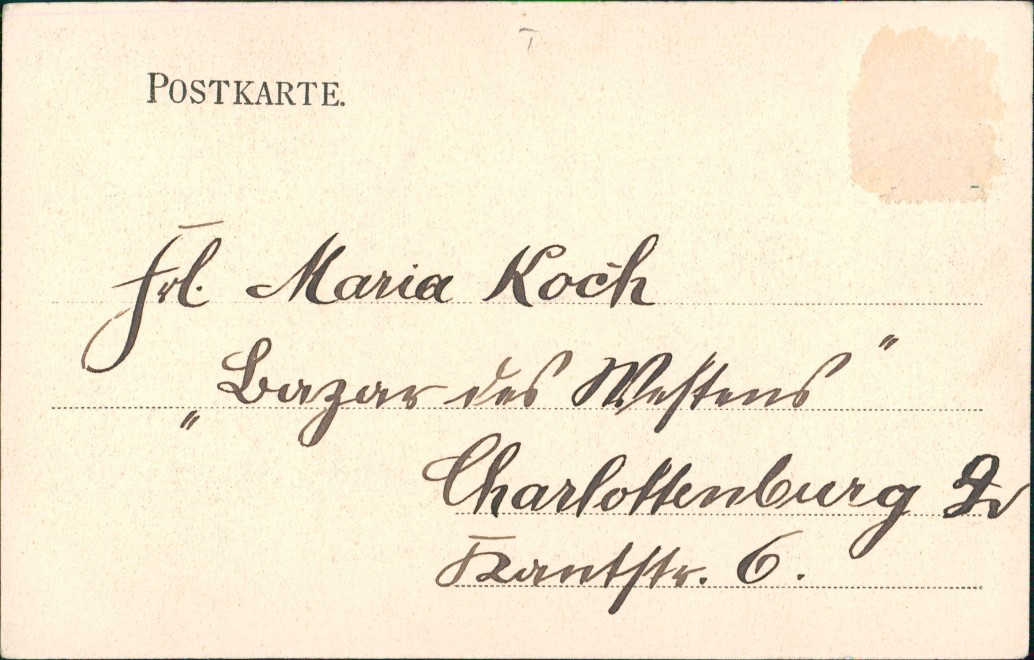 POSTKARTE.
Frl. Maria Koch
„Bazar des Westens"
Charlottenburg
Kantstr. 6.